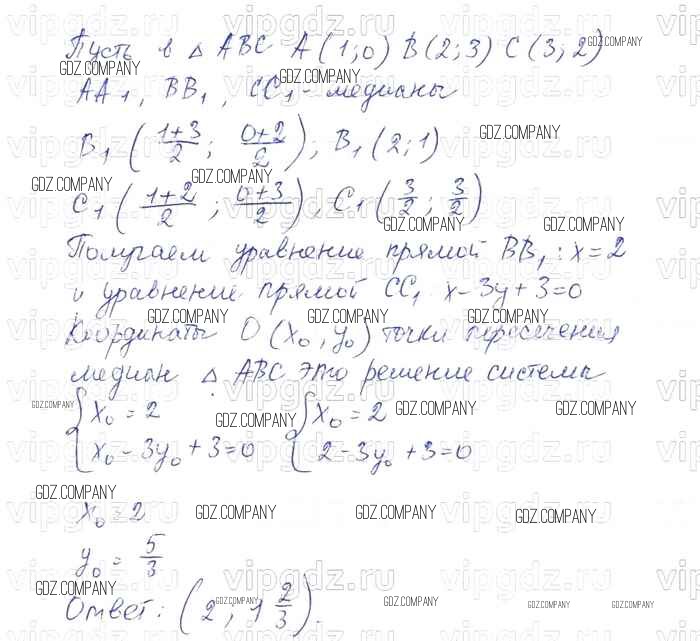 Пусть в △ ABC A(1;0) B(2;3) C(3;2)
AA₁, BB₁, CC₁ - медианы
B₁ ( (1+3)/2 ; (0+2)/2 ); B₁(2;1)
C₁ ( (1+2)/2 ; (0+3)/2 ), C₁ ( 3/2 ; 3/2 )
Получаем уравнение прямой BB₁: x=2
и уравнение прямой CC₁ x-3y+3=0
Координаты O(x₀, y₀) точки пересечения
медиан △ ABC это решение системы
{ x₀ = 2 { x₀ = 2
x₀ - 3y₀ + 3 = 0 2 - 3y₀ + 3 = 0
x₀ = 2
y₀ = 5/3
Ответ: (2, 1 2/3).
GDZ.COMPANY
vipgdz.ru